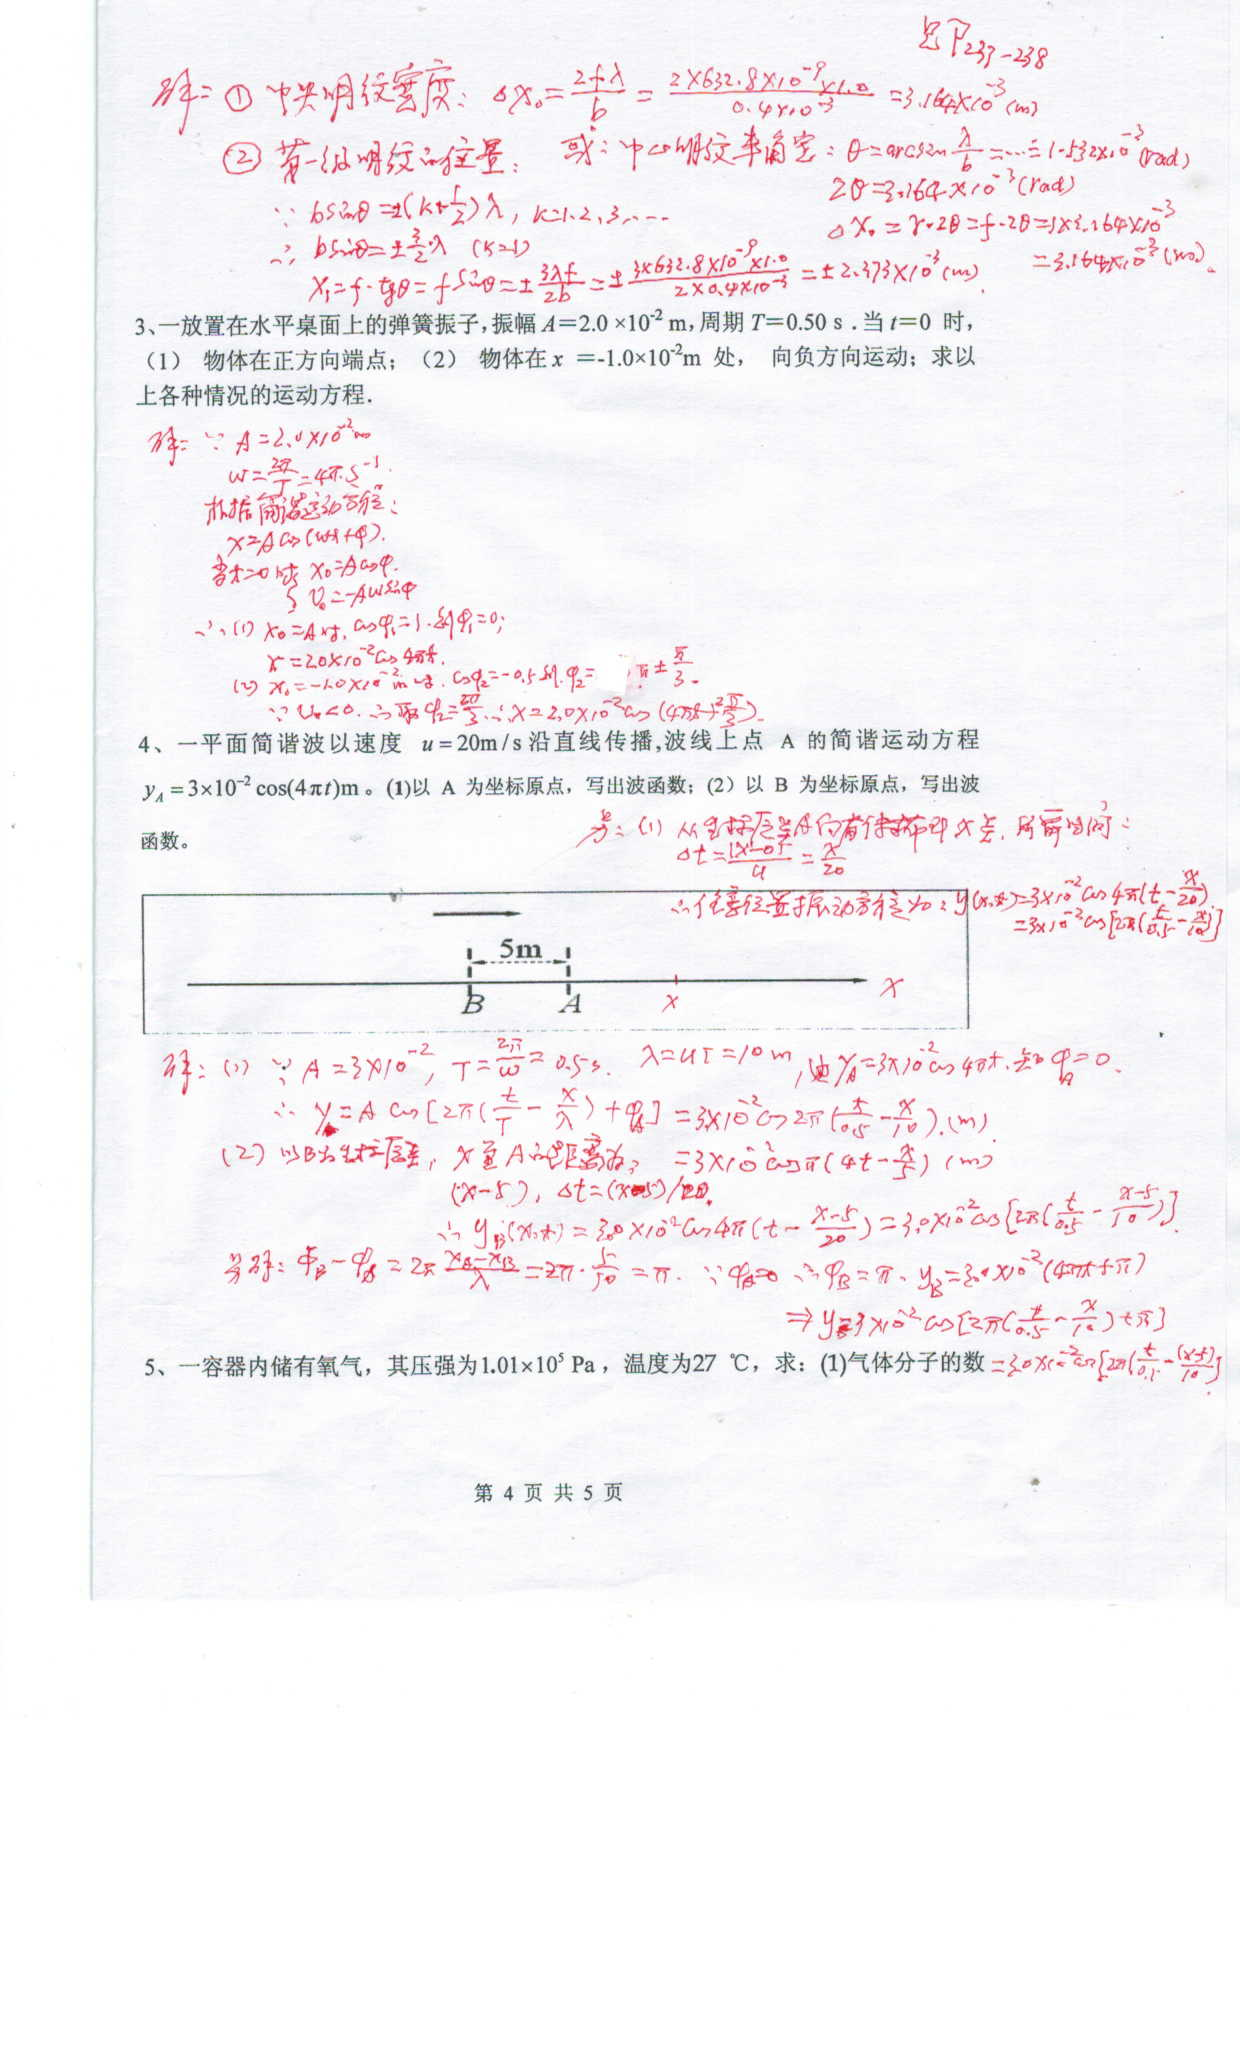 见P233-238
解: ① 中央明纹宽度: Δx₀ = 2fλ/b = 2×632.8×10⁻⁹×1.0/0.4×10⁻³ = 3.164×10⁻³(m)
② 第一级明纹的位置:
或: 中心明纹半角宽: θ=arcsin λ/b =...= 1.532×10⁻³(rad)
2θ=3.164×10⁻³(rad)
Δx₀ = r·2θ=f·2θ=1×3.164×10⁻³
=3.164×10⁻³(m).
∵ bsinθ=±(k+1/2)λ, k=1.2.3.....
∴ bsinθ=±3/2λ (k=1)
X₁=f·tgθ=fsinθ=±3λf/2b=±3×632.8×10⁻⁹×1.0/2×0.4×10⁻³=±2.373×10⁻³(m).
3、一放置在水平桌面上的弹簧振子,振幅 A=2.0 ×10⁻² m,周期 T=0.50 s .当 t=0 时,
（1） 物体在正方向端点；（2） 物体在 x =-1.0×10⁻²m 处， 向负方向运动；求以
上各种情况的运动方程.
解: ∵ A=2.0×10⁻²m
ω=2π/T=4π.s⁻¹.
根据简谐运动方程:
x=Acos(ωt+φ).
当t=0时 x₀=Acosφ.
v₀=-Aωsinφ
∴(1) x₀=A时, cosφ₁=1.则φ₁=0;
x=2.0×10⁻²cos4πt.
(2) x₀=-1.0×10⁻²m时. cosφ₂=-0.5则.φ₂= π±π/3.
∵ v₀<0.∴取φ₂=2π/3.∴x=2.0×10⁻²cos(4πt+2π/3).
4、一平面简谐波以速度 u=20m/s 沿直线传播,波线上点 A 的简谐运动方程
y_A=3×10⁻² cos(4πt)m。(1)以 A 为坐标原点，写出波函数；(2）以 B 为坐标原点，写出波
函数。
另: (1) 从坐标原点A向前传播即x点, 所需时间:
Δt=|x-0|/u=x/20
∴任意位置振动方程为: y(x,t)=3×10⁻²cos4π(t-x/20)
=3×10⁻²cos[2π(t/0.5-x/10)]
5m
B A x X
解: (1) ∵ A=3×10⁻², T=2π/ω=0.5s. λ=uT=10m, 由y_A=3×10⁻²cos4πt.知φ_A=0.
∴ y=Acos[2π(t/T-x/λ)+φ_A]=3×10⁻²cos2π(t/0.5-x/10).(m)
=3×10⁻²cosπ(4t-x/5) (m)
(2) 以B为坐标原点, x至A的距离为:
(x-5), Δt=(x-5)/20.
∴ y_B(x,t)=3.0×10⁻²cos4π(t-x-5/20)=3.0×10⁻²cos[2π(t/0.5-x-5/10)].
另解: φ_B-φ_A=2π x_A-x_B/λ=2π·5/10=π. ∵φ_A=0 ∴φ_B=π. y_B=3.0×10⁻²(4πt+π)
⇒ y=3×10⁻²cos[2π(t/0.5-x/10)+π]
5、一容器内储有氧气，其压强为1.01×10⁵ Pa，温度为27 ℃，求：(1)气体分子的数
=3.0×10⁻²cos[2π(t/0.5-(x-5)/10)].
第 4 页 共 5 页